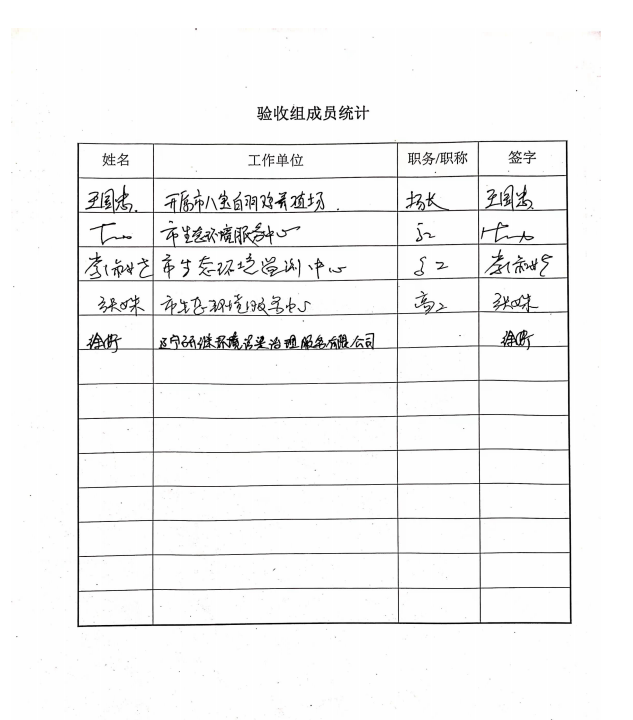 验收组成员统计
姓名 工作单位 职务/职称 签字
王国忠. 开原市八宝白羽鸡养殖场. 场长 王国忠
市生态环境服务中心 高工
市生态环境监测中心 高工
张姝 市生态环境服务中心 高工 张姝
徐 环境污染治理服务有限公司 徐